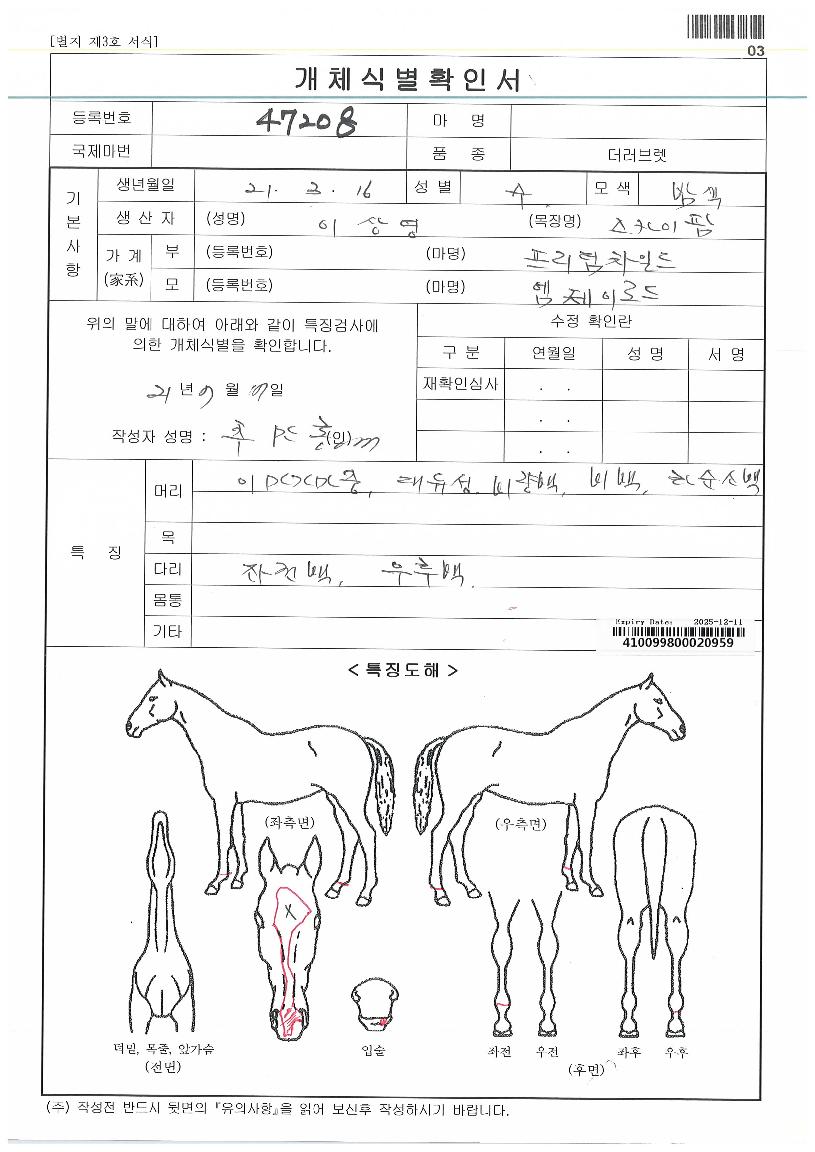 [별지 제3호 서식]
03
개체식별확인서
등록번호 47208 마 명
국제마번 품 종 더러브렛
기본사항
생년월일 21. 3. 16 성 별 수 모 색 밤색
생 산 자 (성명) 이상영 (목장명) 스카이팜
가 계 (家系)
부 (등록번호) (마명) 프리텀차일드
모 (등록번호) (마명) 엠제이로드
위의 말에 대하여 아래와 같이 특징검사에
의한 개체식별을 확인합니다.
21 년 월 일
작성자 성명 : (인)
수정 확인란
구 분 연월일 성 명 서 명
재확인심사 . .
. .
. .
특 징
머리 대유성 비량백, 비백,
목
다리 좌전백, 우후백
몸통
기타
Expiry Date: 2025-12-11
410099800020959
< 특징도해 >
(좌측면) (우측면)
X
턱밑, 목줄, 앞가슴
(전면)
입술
좌전 우전 좌후 우후
(후면)
(주) 작성전 반드시 뒷면의 『유의사항』을 읽어 보신후 작성하시기 바랍니다.